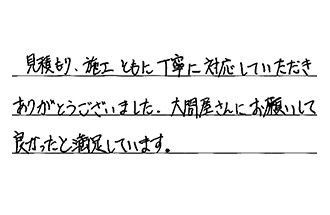 見積もり、施工ともに丁寧に対応していただき
ありがとうございました。大問屋さんにお願いして
良かったと満足しています。